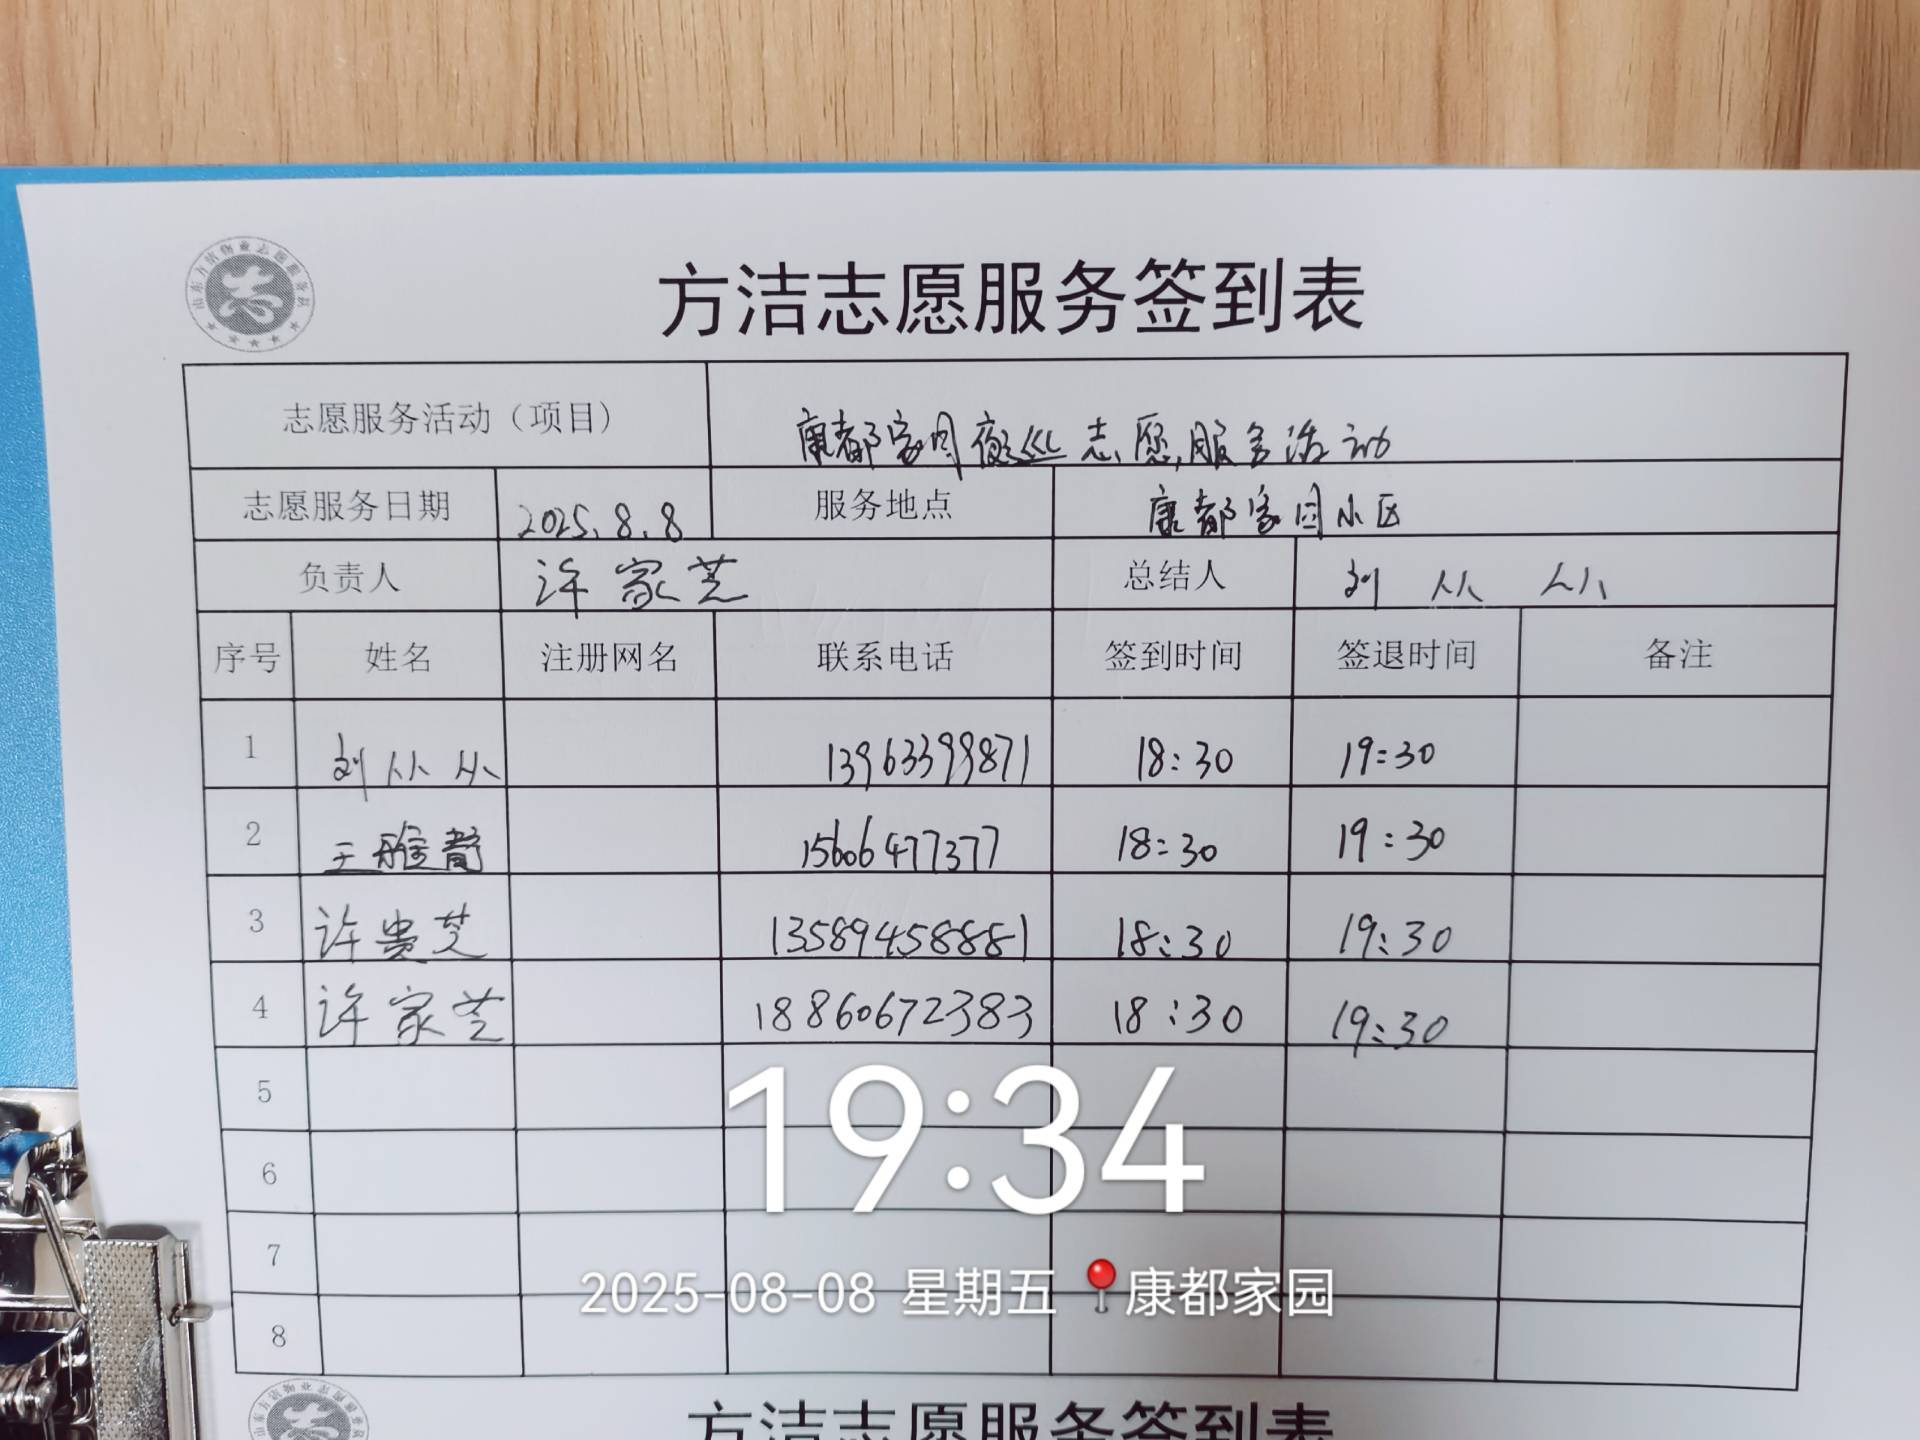 方洁志愿服务签到表
志愿服务活动（项目） 康都家园夜巡志愿服务活动
志愿服务日期 2025.8.8 服务地点 康都家园小区
负责人 许家芝 总结人 刘从从
序号 姓名 注册网名 联系电话 签到时间 签退时间 备注
1 刘从从 13963399871 18:30 19:30
2 王雅静 15606477377 18:30 19:30
3 许贵芝 13589458881 18:30 19:30
4 许家芝 18860672383 18:30 19:30
5
6
7
8
19:34
2025-08-08 星期五 康都家园
方洁志愿服务签到表